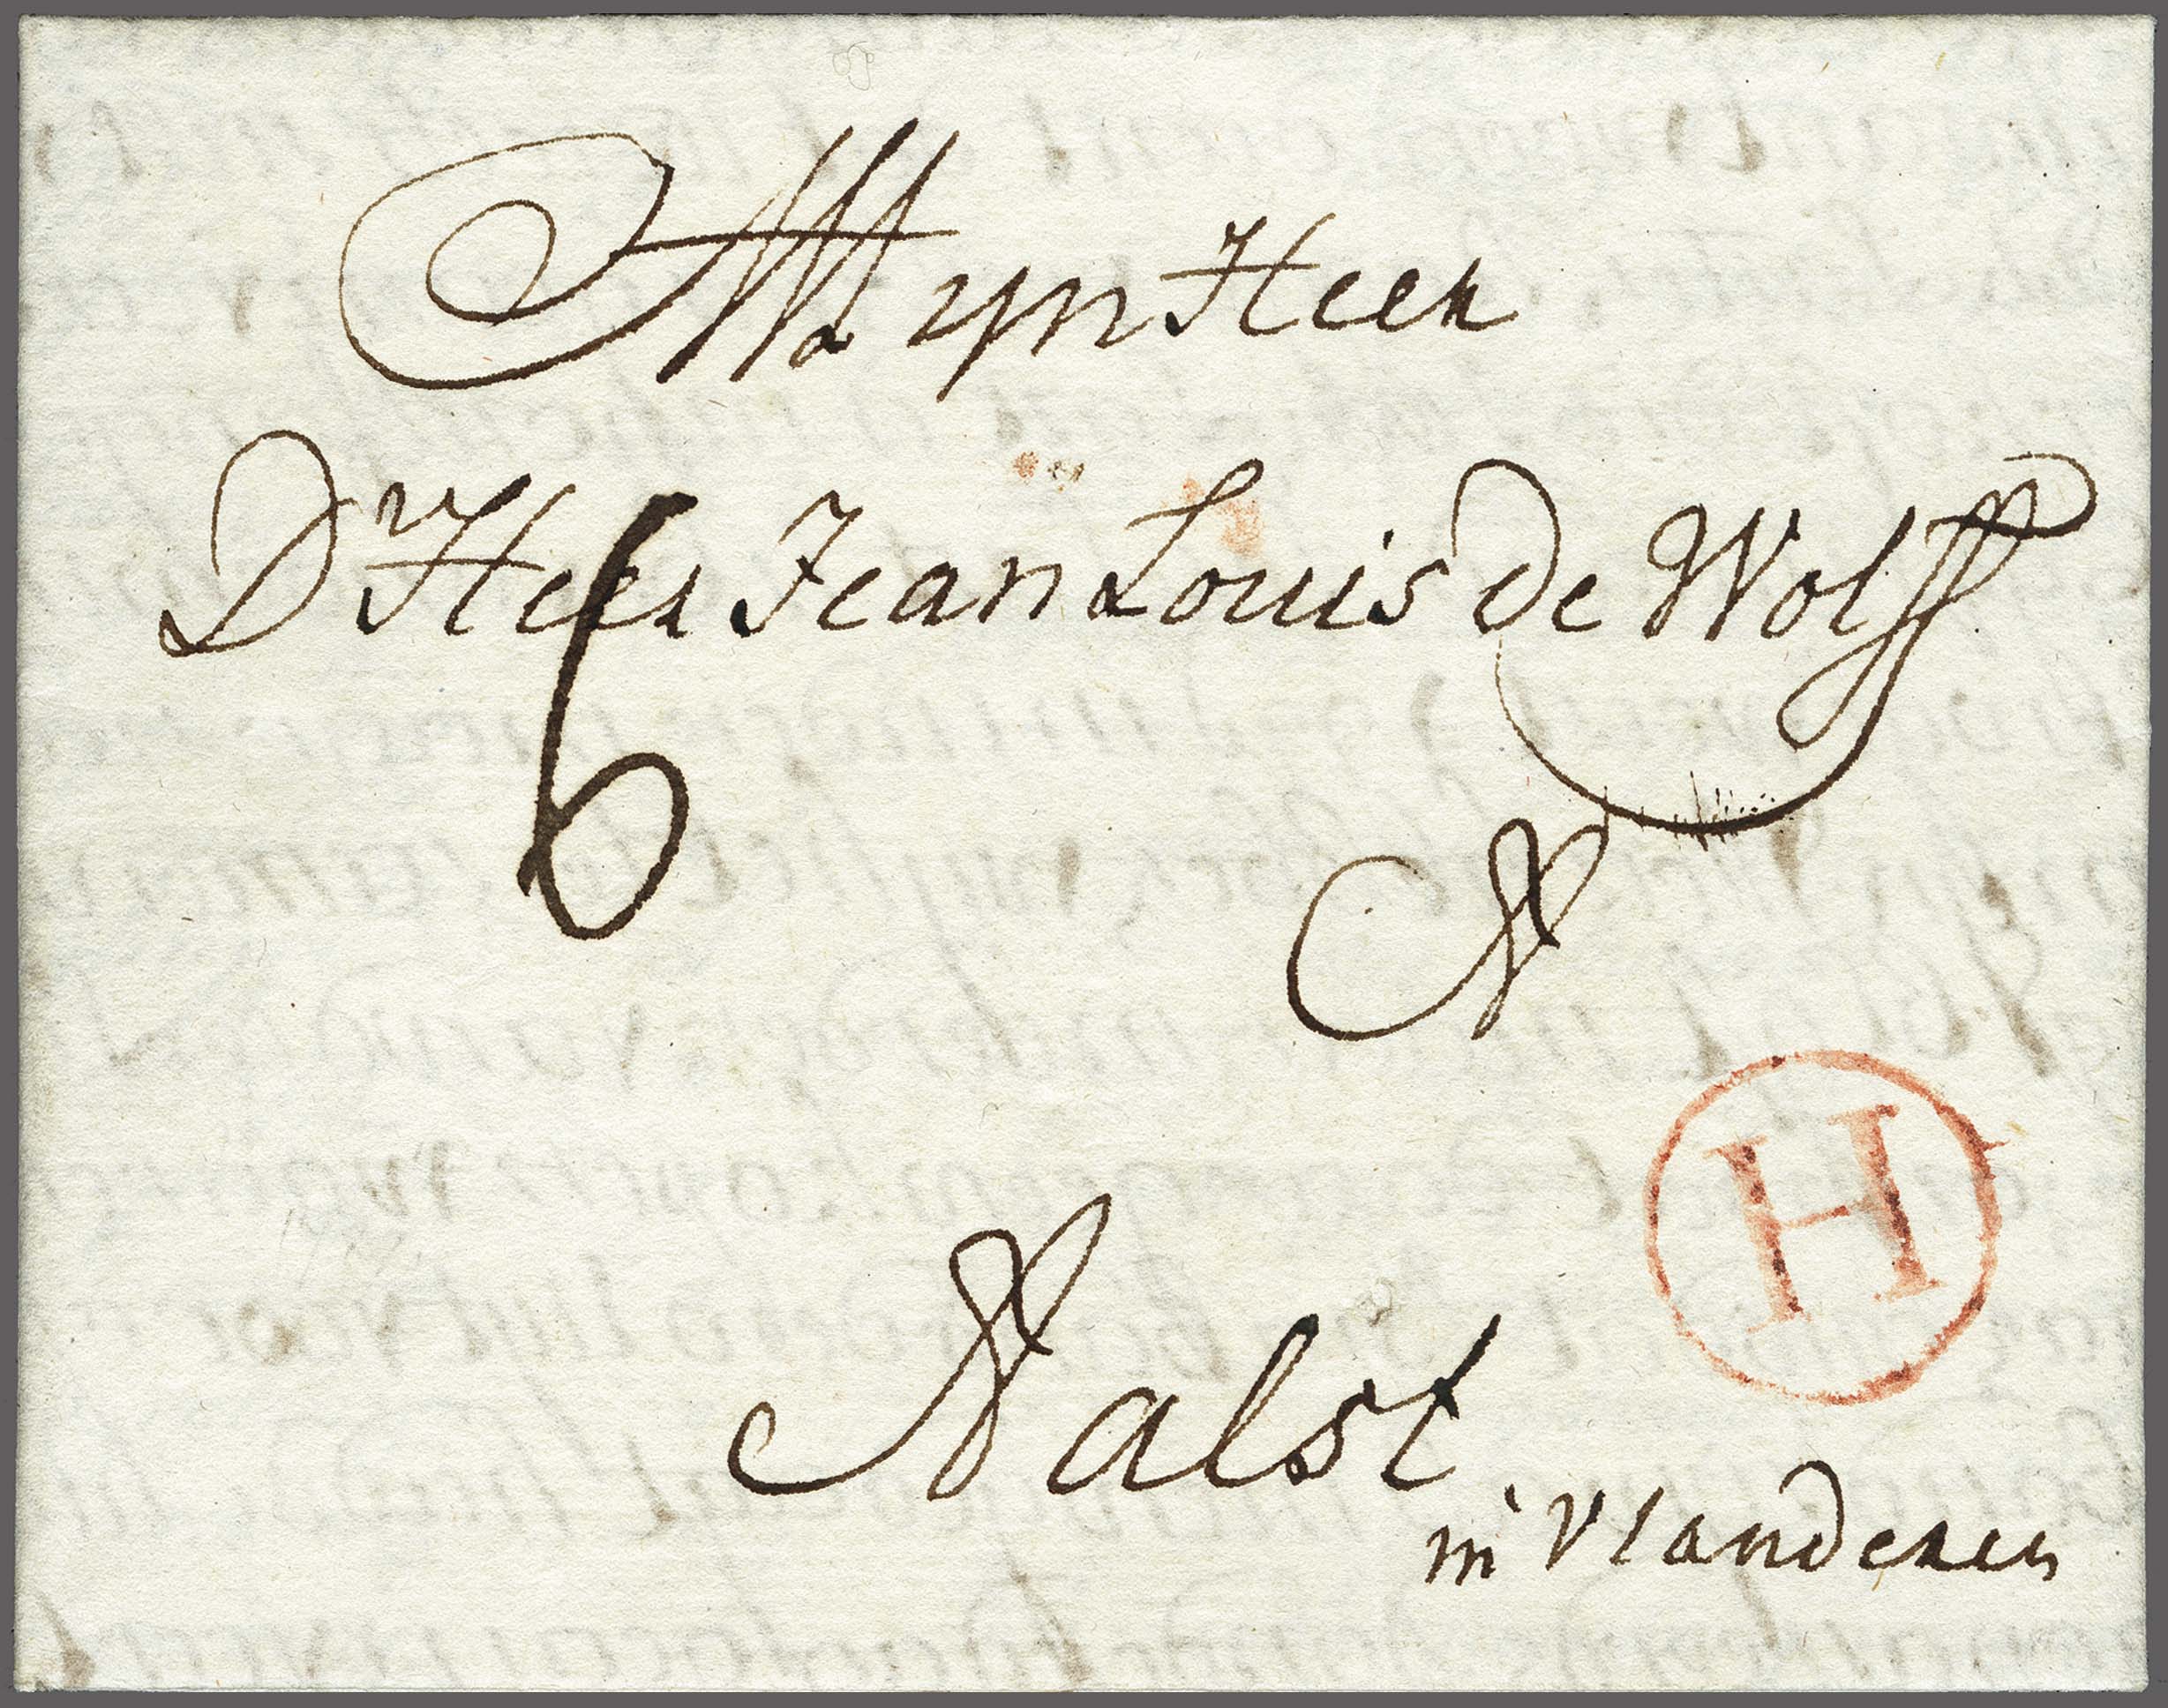 Myn Heer
Dr Heer Jean Louis de Wolff
6
A
H
Aalst
in vlanderen